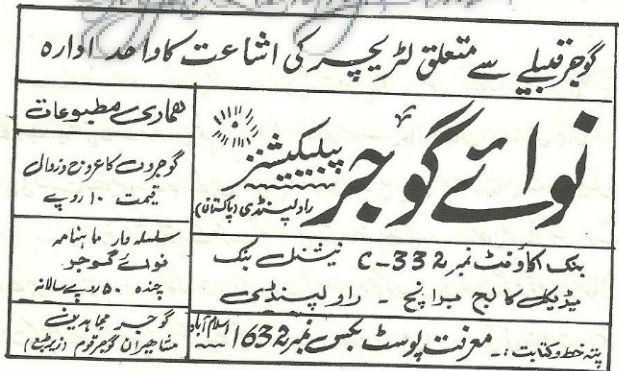 گوجر قبیلے سے متعلق لٹریچر کی اشاعت کا واحد ادارہ
نوائے گوجر
پبلیکیشنز
راولپنڈی (پاکستان)
بنک اکاؤنٹ نمبر C-332 نیشنل بنک
میڈیکل کالج برانچ - راولپنڈی
پتہ خط و کتابت :- معرفت پوسٹ بکس نمبر 1632 اسلام آباد
ھماری مطبوعات
گوجروں کا عروج و زوال
قیمت ۱۰ روپے
سلسلہ وار ماہنامہ
نوائے گوجر
چندہ ۵۰ روپے سالانہ
گوجر مجاہدین
مشاہیران گوجر قوم (زیر طبع)